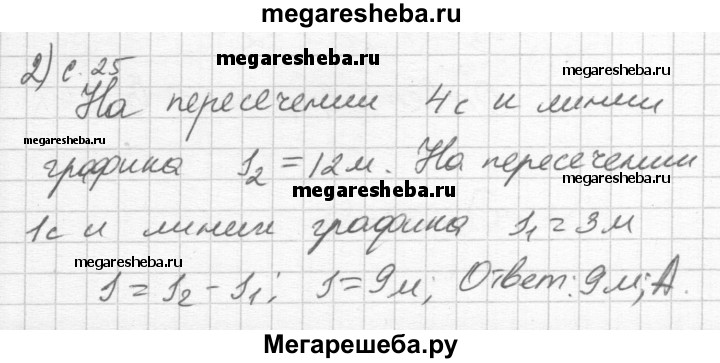 megaresheba.ru
2) с. 25
megaresheba.ru
megaresheba.ru
На пересечении 4с и линии
megaresheba.ru
графика S₂ = 12м. На пересечении
megaresheba.ru
megaresheba.ru
1с и линии графика S₁ = 3м
megaresheba.ru
megaresheba.ru
S = S₂ - S₁; S = 9м; Ответ: 9м; А.
Мегарешеба.ру